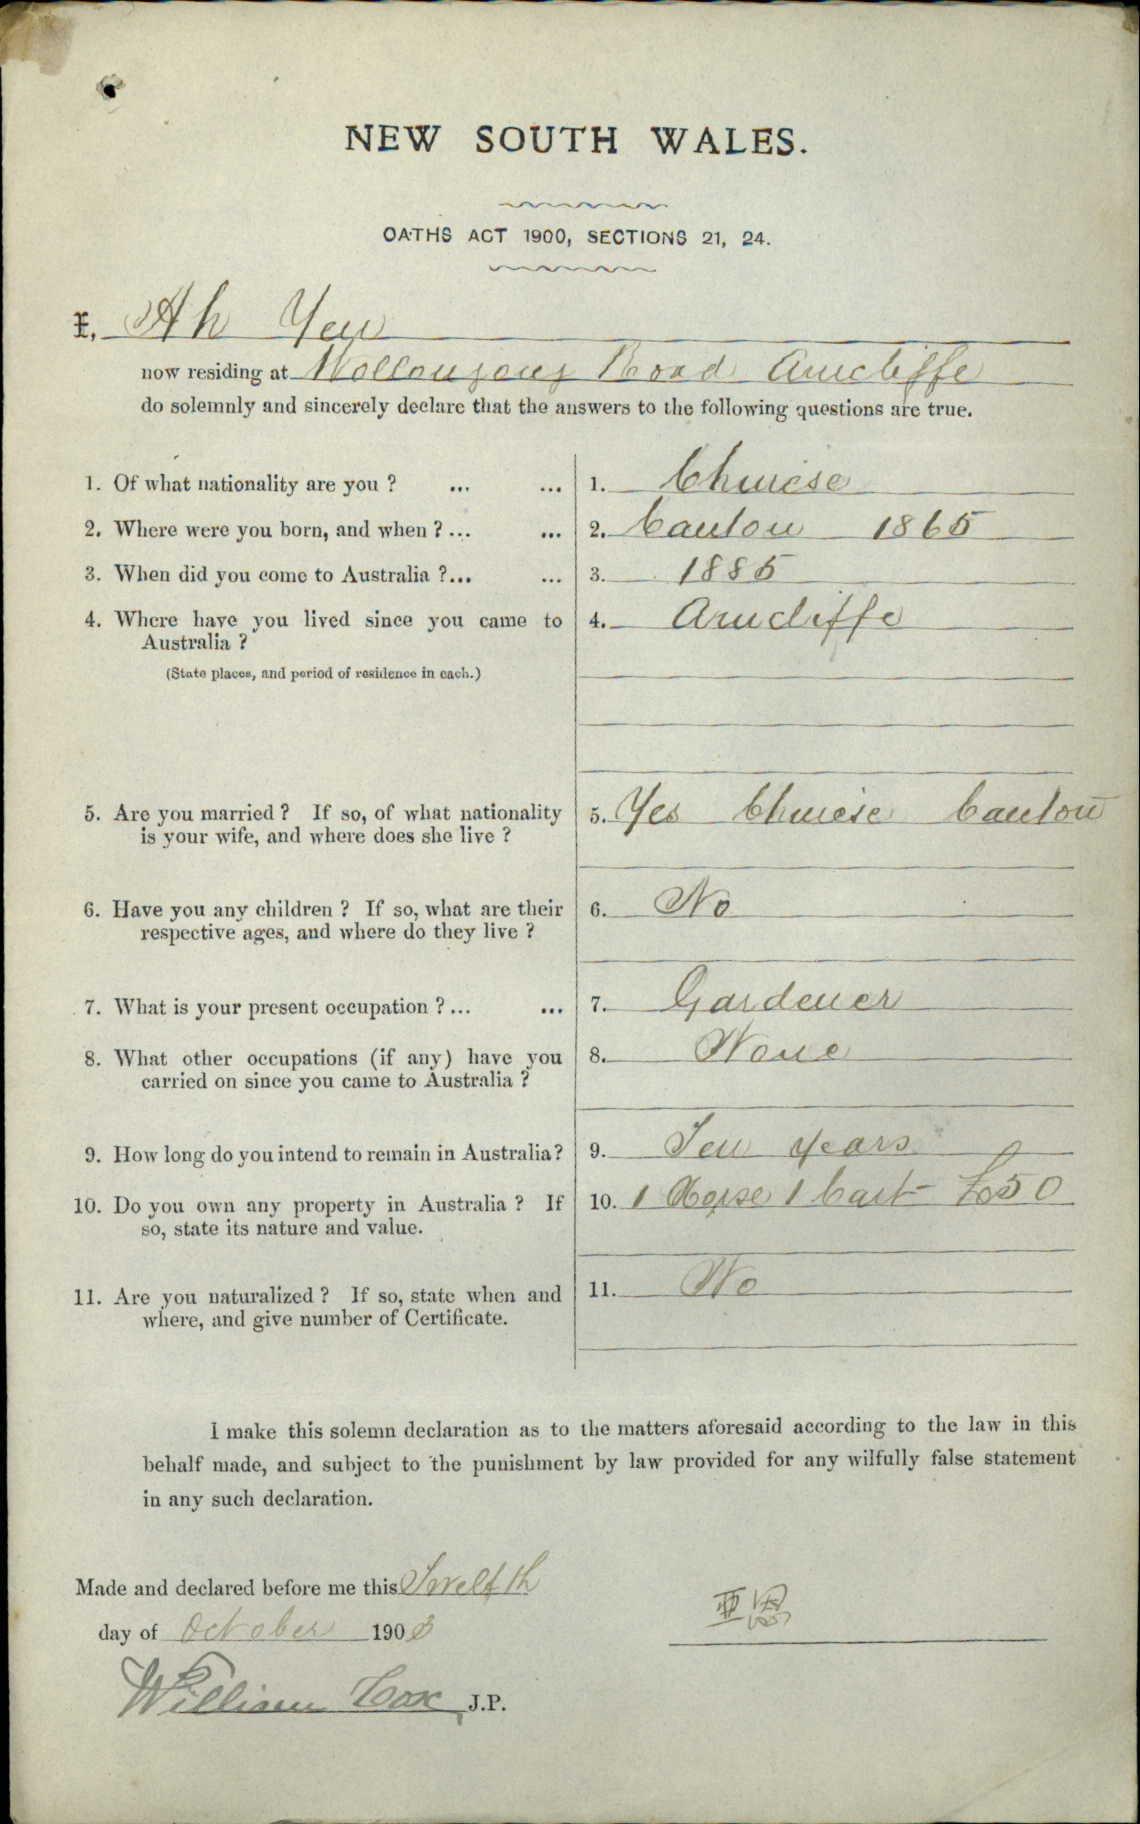 NEW SOUTH WALES.
OATHS ACT 1900, SECTIONS 21, 24.
I, Ah Yew
now residing at Wollongong Road Arncliffe
do solemnly and sincerely declare that the answers to the following questions are true.
1. Of what nationality are you ? ... ... 1. Chinese
2. Where were you born, and when ? ... ... 2. Canton 1865
3. When did you come to Australia ?... ... 3. 1885
4. Where have you lived since you came to 4. Arncliffe
Australia ?
(State places, and period of residence in each.)
5. Are you married ? If so, of what nationality 5. Yes Chinese Canton
is your wife, and where does she live ?
6. Have you any children ? If so, what are their 6. No
respective ages, and where do they live ?
7. What is your present occupation ? ... ... 7. Gardener
8. What other occupations (if any) have you 8. None
carried on since you came to Australia ?
9. How long do you intend to remain in Australia? 9. Ten years
10. Do you own any property in Australia ? If 10. 1 Horse 1 Cart £50
so, state its nature and value.
11. Are you naturalized ? If so, state when and 11. No
where, and give number of Certificate.
I make this solemn declaration as to the matters aforesaid according to the law in this
behalf made, and subject to the punishment by law provided for any wilfully false statement
in any such declaration.
Made and declared before me this Twelfth
day of October 1903
亞
William Cox J.P.